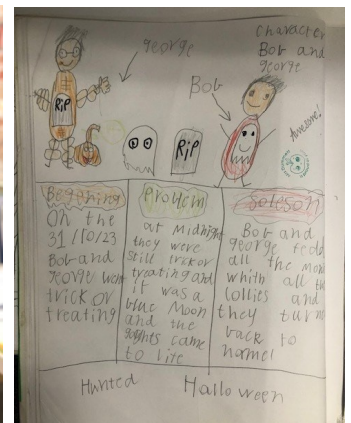 Character
Bob and
george
george
Bob
Awesome!
RiP
RiP
Begining
On the
31/10/23
Bob and
georie went
trick or
treating
Problem
at Midnight
they were
still trick or
treating and
it was a
blue Moon
and the
came
to life
Soleson
Bob and
george fedd
all the
whith all the
lollies and
they turn
back to
Hunted Halloween